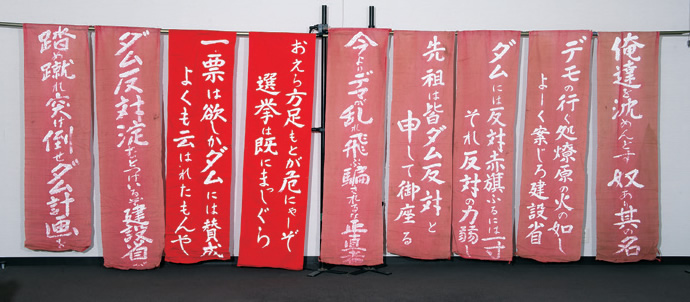 俺達を沈めんとす 奴あり其の名
デモの行く処燎原の火の如し
よーく案じろ建設省
ダムには反対赤旗ぶるには一寸
それ反対の力弱し
先祖は皆ダム反対と
申して御座る
今よりデマが乱れ飛ぶ騙されるな正直者
おえら方足もとが危にゃーぞ
選挙は既にまっしぐら
一票は欲しかダムには賛成
よくも云はれたもんや
ダム反対 建設省が
踏め蹴れ突け倒せダム計画を